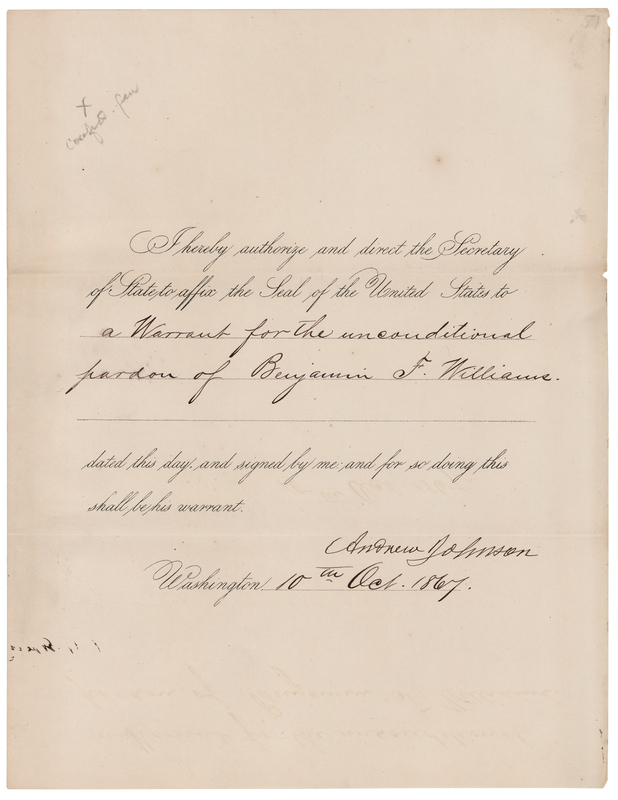 I hereby authorize and direct the Secretary
of State to affix the Seal of the United States to
a Warrant for the unconditional
pardon of Benjamin F. Williams.
dated this day, and signed by me: and for so doing this
shall be his warrant.
Andrew Johnson
Washington 10th Oct. 1867.